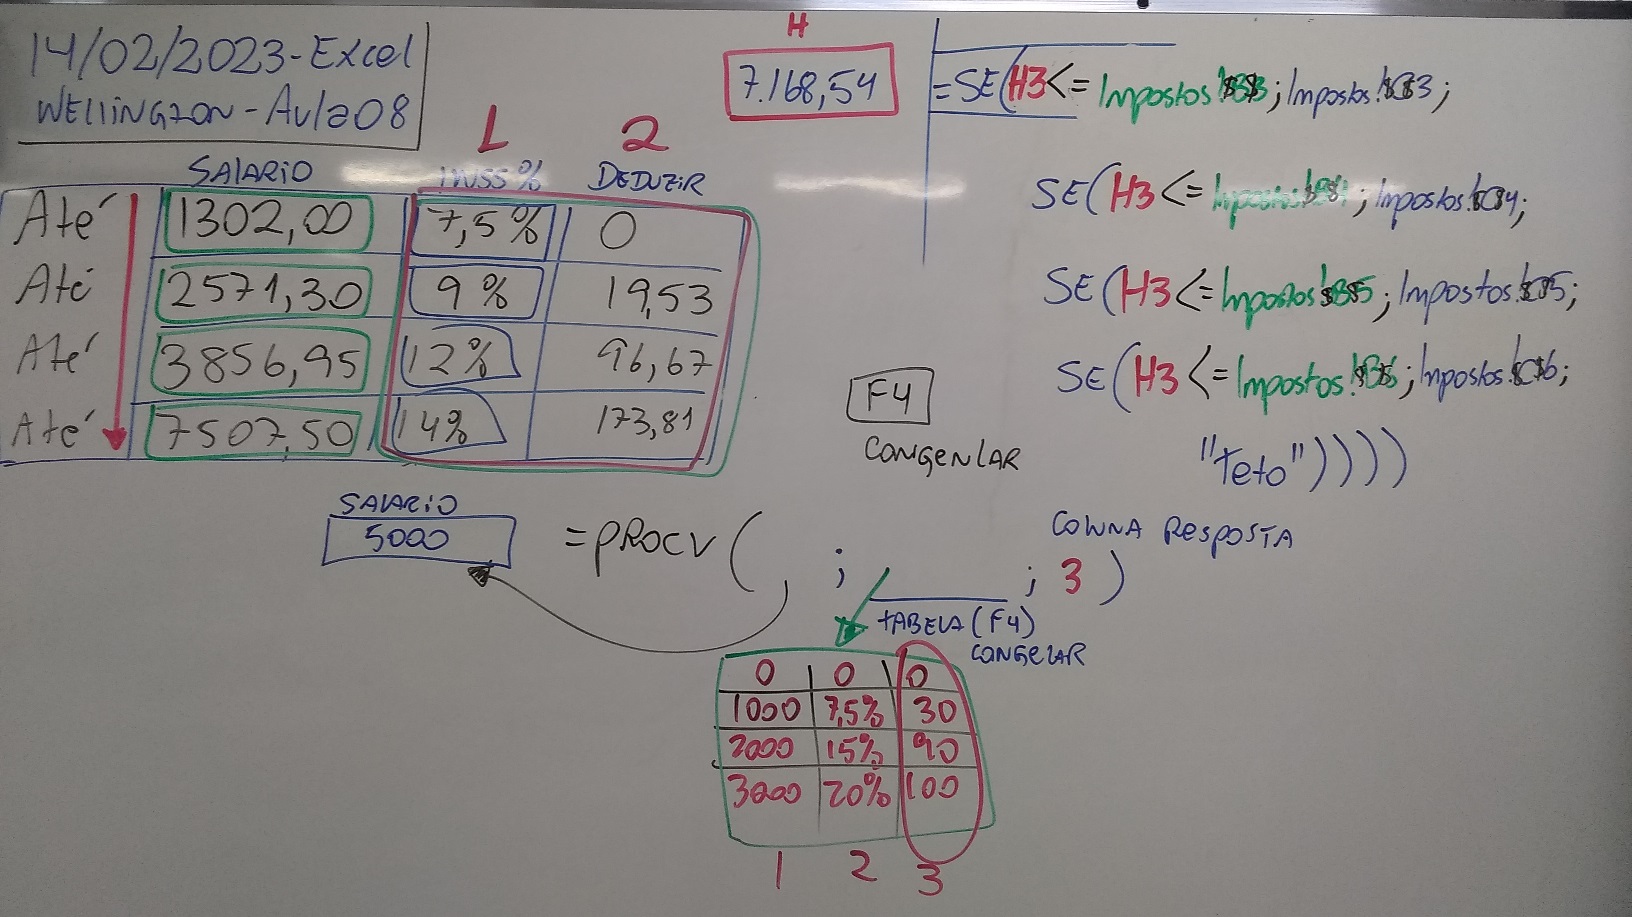 14/02/2023-Excel
WELLINGTON-Aula08
H
7.168,54
1 2
SALARIO INSS% DEDUZIR
Até 1302,00 7,5% 0
Até 2571,30 9% 19,53
Até 3856,95 12% 96,67
Até 7507,50 14% 173,81
=SE(H3<=Impostos!$B$3;Impostos!$C$3;
SE(H3<=Impostos!$B$4;Impostos!$C$4;
SE(H3<=Impostos!$B$5;Impostos!$C$5;
SE(H3<=Impostos!$B$6;Impostos!$C$6;
"Teto"))))
F4
CONGENLAR
SALARIO
5000
=PROCV( ; ; 3)
COLUNA RESPOSTA
TABELA(F4)
CONGELAR
0 0 0
1000 7,5% 30
2000 15% 90
3000 20% 100
1 2 3